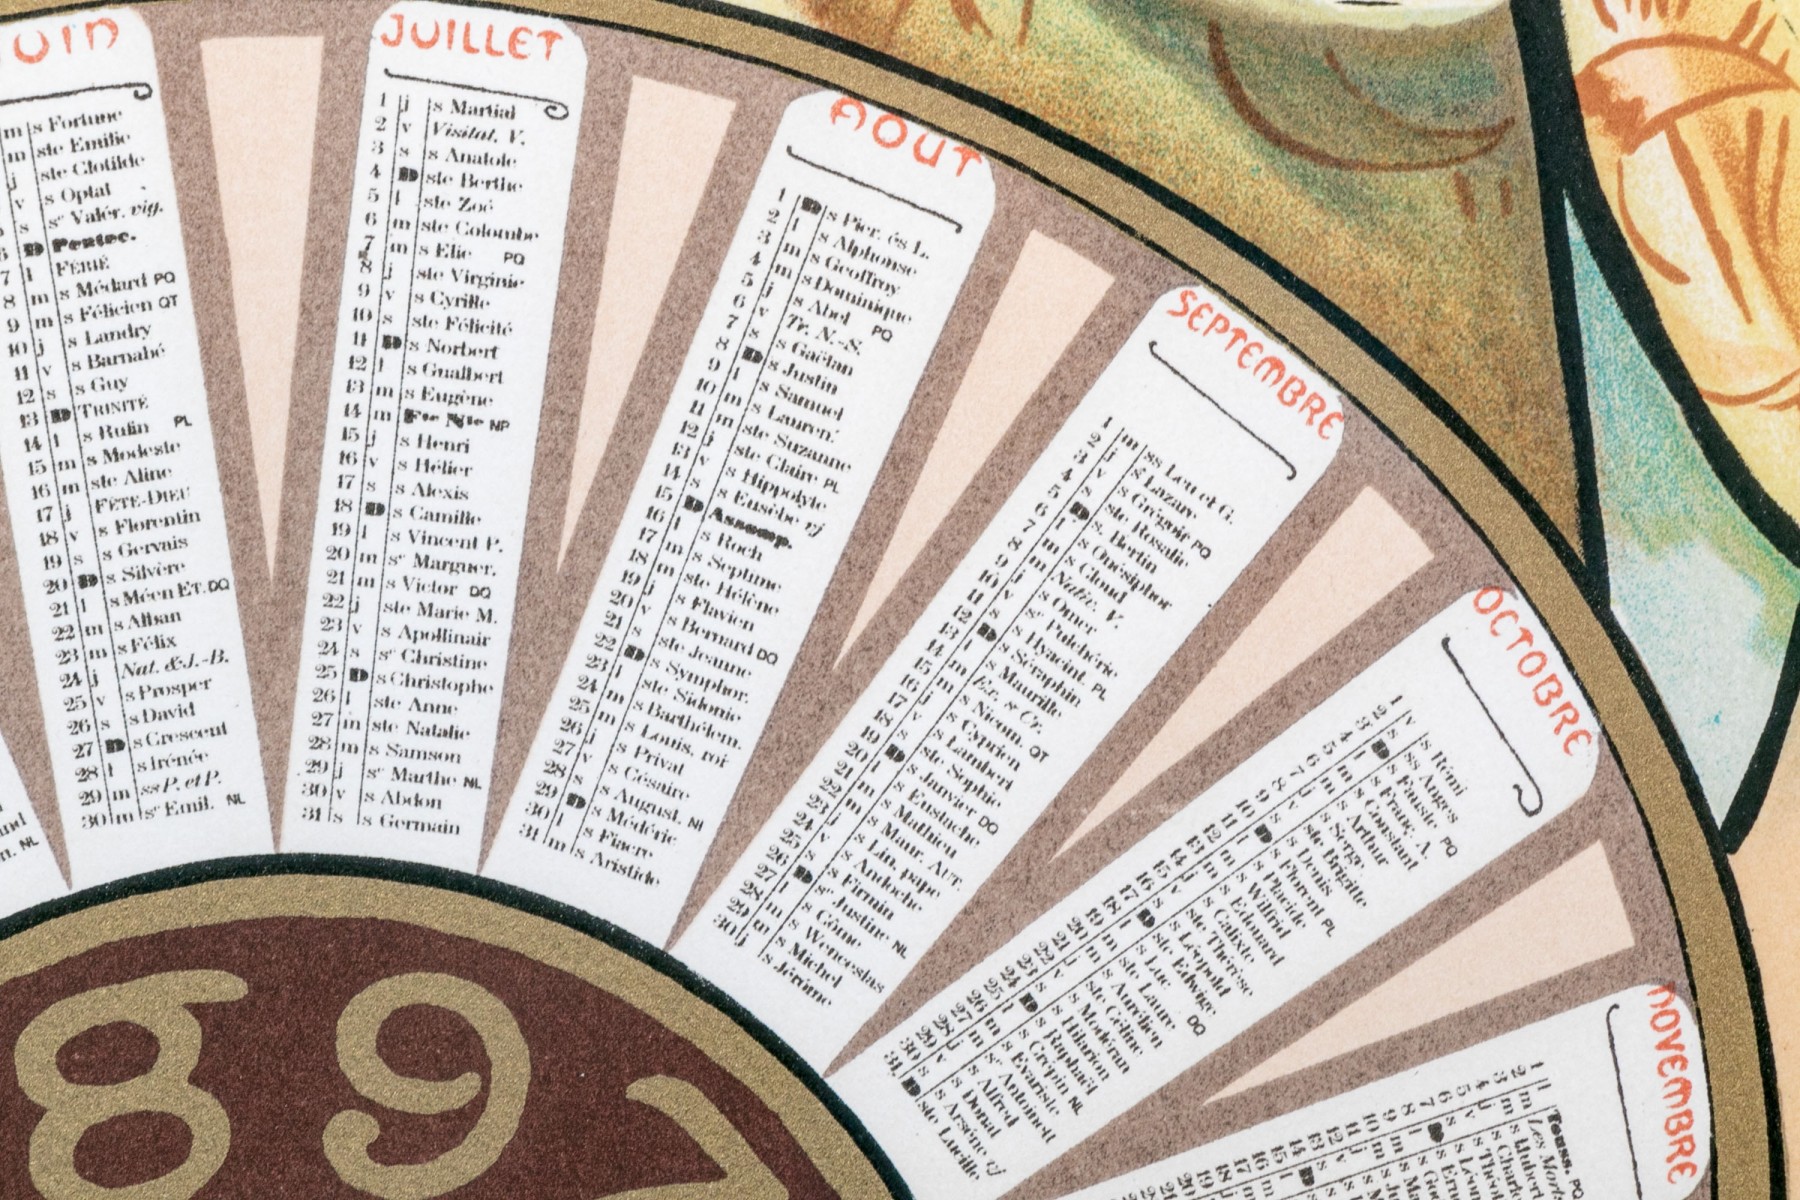 UIN
m s Fortune
m ste Emilie
j ste Clotilde
v s Optat
s sᵗ Valér. vig.
D Pentec.
7 l FÉRIÉ
8 m s Médard PQ
9 m s Félicien QT
10 j s Landry
11 v s Barnabé
12 s s Guy
13 D TRINITÉ
14 l s Rufin PL
15 m s Modeste
16 m ste Aline
17 j FÊTE-DIEU
18 v s Florentin
19 s s Gervais
20 D s Silvère
21 l s Méen ET. DQ
22 m s Alban
23 m s Félix
24 j Nat. de J.-B.
25 v s Prosper
26 s s David
27 D s Crescent
28 l s Irénée
29 m ss P. et P.
30 m sᵗ Emil. NL
JUILLET
1 j s Martial
2 v Visitat. V.
3 s s Anatole
4 D ste Berthe
5 l ste Zoé
6 m ste Colombe
7 m s Elie PQ
8 j ste Virginie
9 v s Cyrille
10 s ste Félicité
11 D s Norbert
12 l s Gualbert
13 m s Eugène
14 m Fte Nle NP
15 j s Henri
16 v s Hélier
17 s s Alexis
18 D s Camille
19 l s Vincent P.
20 m sᵉ Marguer.
21 m s Victor DQ
22 j ste Marie M.
23 v s Apollinair
24 s sᵉ Christine
25 D s Christophe
26 l ste Anne
27 m ste Natalie
28 m s Samson
29 j sᵉ Marthe NL
30 v s Abdon
31 s s Germain
AOUT
1 D s Pier. ès L.
2 l s Alphonse
3 m s Geoffroy
4 m s Dominique
5 j s Abel PQ
6 v Tr. N.-S.
7 s s Gaëtan
8 D s Justin
9 l s Samuel
10 m s Lauren.
11 m ste Suzanne
12 j ste Claire PL
13 v s Hippolyte
14 s s Eusèbe vj
15 D Assomp.
16 l s Roch
17 m s Septime
18 m ste Hélène
19 j s Flavien
20 v s Bernard DQ
21 s ste Jeanne
22 D s Symphor.
23 l ste Sidonie
24 m s Barthélem.
25 m s Louis, roi
26 j s Privat
27 v s Césaire
28 s s August. NL
29 D s Médéric
30 l s Fiacre
31 m s Aristide
SEPTEMBRE
1 m ss Leu et G.
2 j s Lazare
3 v s Grégoir PQ
4 s ste Rosalie
5 D s. Bertin
6 l s Onésiphor
7 m s Cloud
8 m Nativ. V.
9 j s Omer
10 v sᵉ Pulchérie
11 s s Hyacint. PL
12 D s Séraphin
13 l s Maurille
14 m Ex. se Cr.
15 m s Nicom. QT
16 j s Cyprien
17 v s Lambert
18 s ste Sophie
19 D s Janvier DQ
20 l s Eustache
21 m s Mathieu
22 m s Maur. AUT.
23 j s Lin, pape
24 v s Andoche
25 s s Firmin
26 D sᵉ Justine NL
27 l s Côme
28 m s Wenceslas
29 m s Michel
30 j s Jérôme
OCTOBRE
1 v s Rémi
2 s ss Anges
3 D s Fauste PQ
4 l s Franç. A.
5 m s Constant
6 m s Arthur
7 j s Serge
8 v ste Brigitte
9 s s Denis
10 D s Florent PL
11 l s Placide
12 m s Wilfrid
13 m s Edouard
14 j s Calixte
15 v ste Thérèse
16 s s Léopold
17 D ste Edwige
18 l s Luc DQ
19 m ste Laure
20 m s Aurélien
21 j ste Céline
22 v s Modéran
23 s s Hilarion
24 D s Raphaël
25 l s Crépin NL
26 m s Evariste
27 m sᵉ Antoinett
28 j s Alfred
29 v s Donal
30 s s Arsène vj
31 D ste Lucille
NOVEMBRE
1 l Touss. PQ
2 m Les Mort
3 m s Hubert
4 j s Charl
5 v s Théo
6 s s Léon
7 D s Ern
8 l s Go
9 m s Ma
10 m s Ju
11 j
12 v
13 s
14 D
15 l
16 m
17 m
18
19
20
nd
n. NL
897